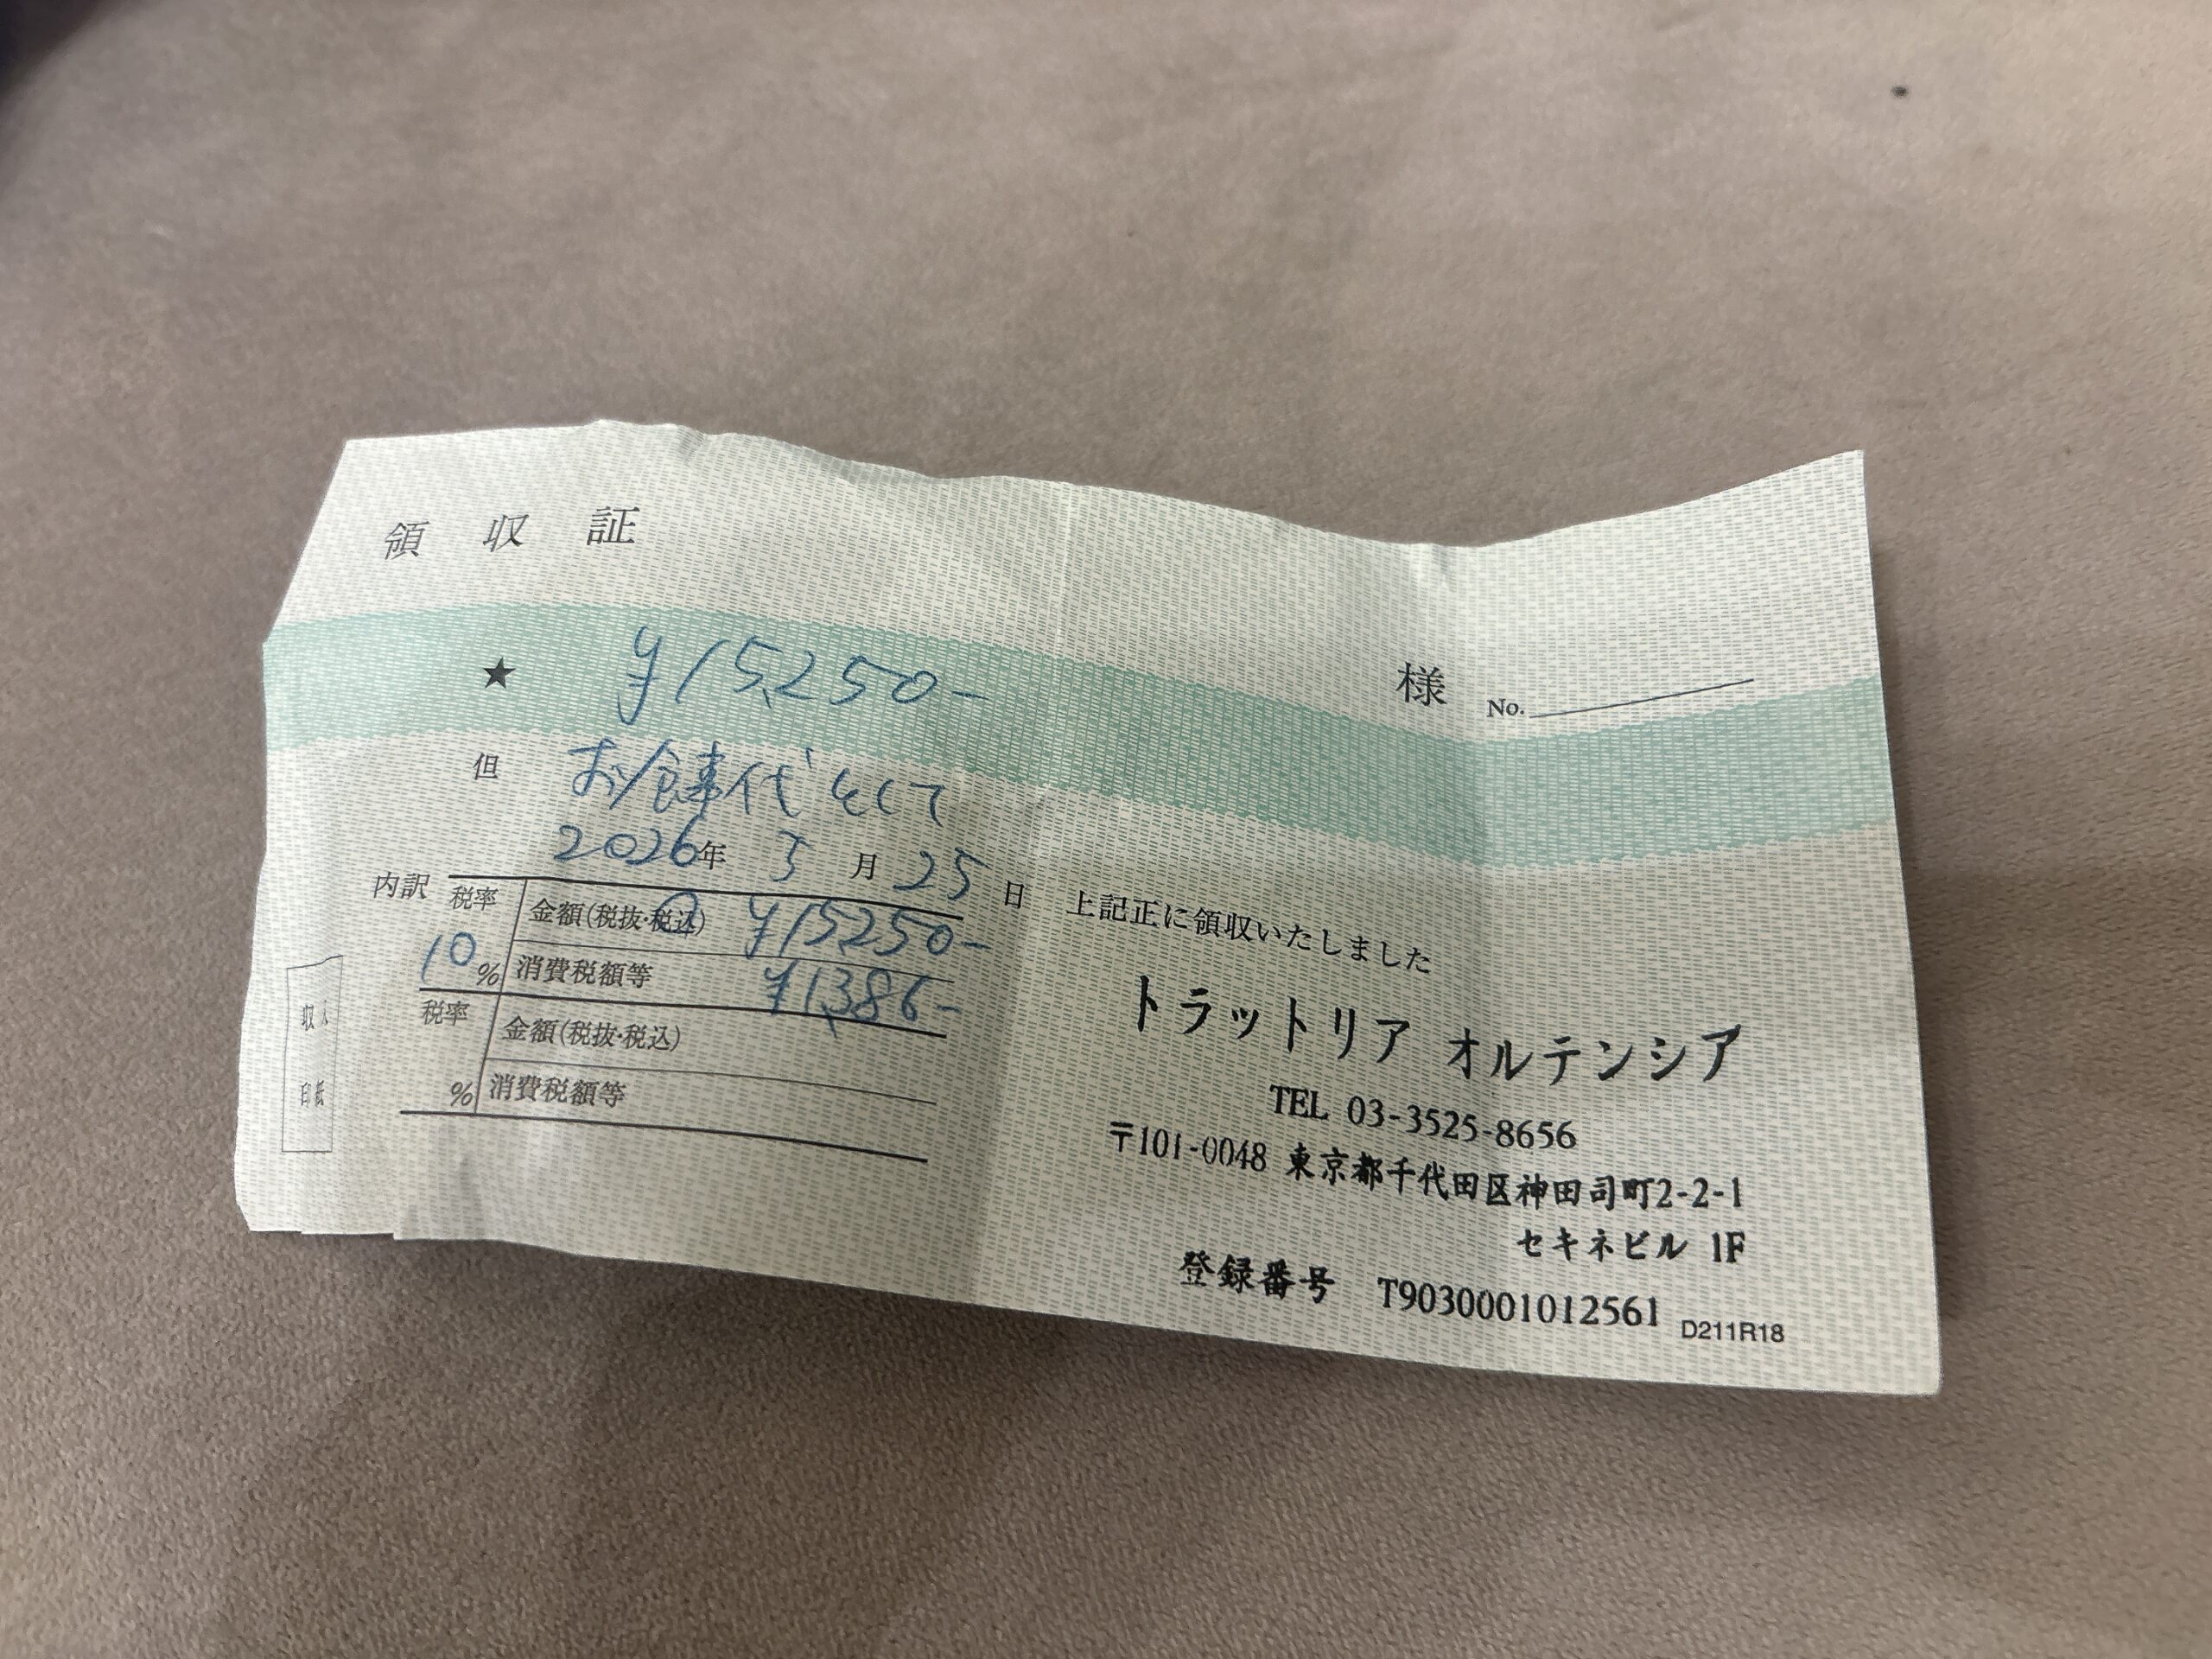 領収証
様 No.
★ ¥15,250-
但 お食事代として
2026年 5月 25日 上記正に領収いたしました
内訳 税率 10%
金額(税抜・税込) ¥15,250-
消費税額等 ¥1,386-
税率 %
金額(税抜・税込)
消費税額等
収入
印紙
トラットリア オルテンシア
TEL 03-3525-8656
〒101-0048 東京都千代田区神田司町2-2-1
セキネビル 1F
登録番号 T9030001012561
D211R18